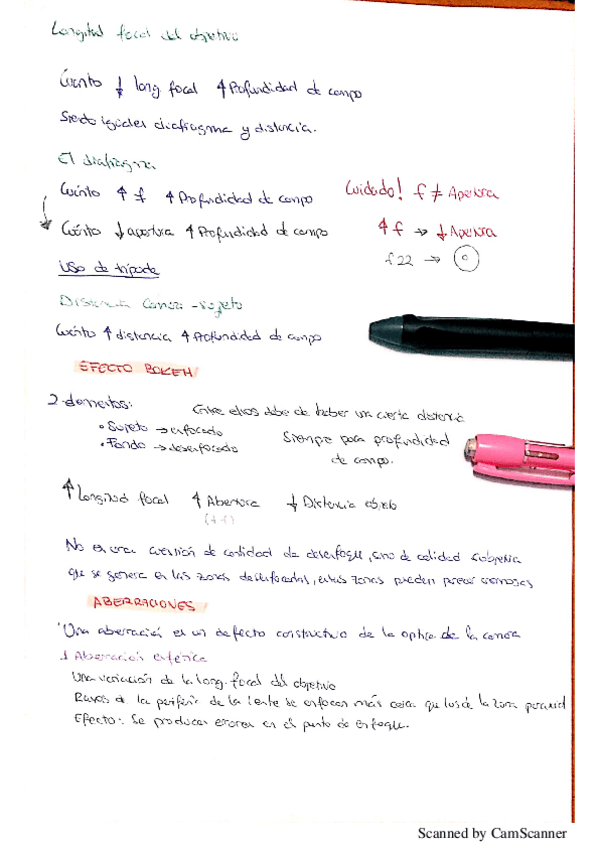 Longitud focal del objetivo
Cuánto ↓ long focal ↑ Profundidad de campo
Siendo iguales diafragma y distancia.
El diafragma
Cuánto ↑ f ↑ Profundidad de campo
Cuidado! f ≠ Apertura
Cuánto ↓ apertura ↑ Profundidad de campo
↑ f → ↓ Apertura
f 22 →
Uso de trípode
Distancia Camara - sujeto
Cuánto ↑ distancia ↑ Profundidad de campo
EFECTO BOKEH
2 elementos:
Entre ellos debe de haber una cierta distancia
• Sujeto → enfocado
• Fondo → desenfocado
Siempre poca profundidad
de campo.
↑ Longitud focal ↑ Abertura ↓ Distancia objeto
No es una cuestión de cantidad de desenfoque, sino de calidad subjetiva
que se genera en las zonas desenfocadas, estas zonas pueden parecer cremosas
ABERRACIONES
Una aberración es un defecto constructivo de la optica de la camara
1 Aberración esférica
Una variación de la long. focal del objetivo
Rayos de la periferia de la lente se enfocan más cerca que los de la zona
Efecto: Se producen errores en el punto de enfoque.
Scanned by CamScanner